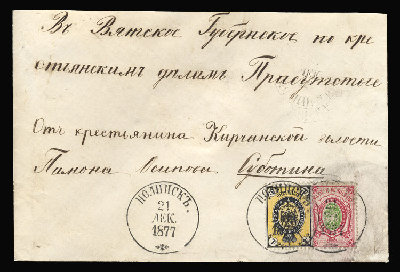 Въ Вятское Губернское по кре
стьянскимъ дѣламъ Присутствіе
Отъ крестьянина Кирчанской волости
Пимона Осипова Субтина
НОЛИНСКЪ.
21
ДЕК.
1877
НОЛИНСКЪ.